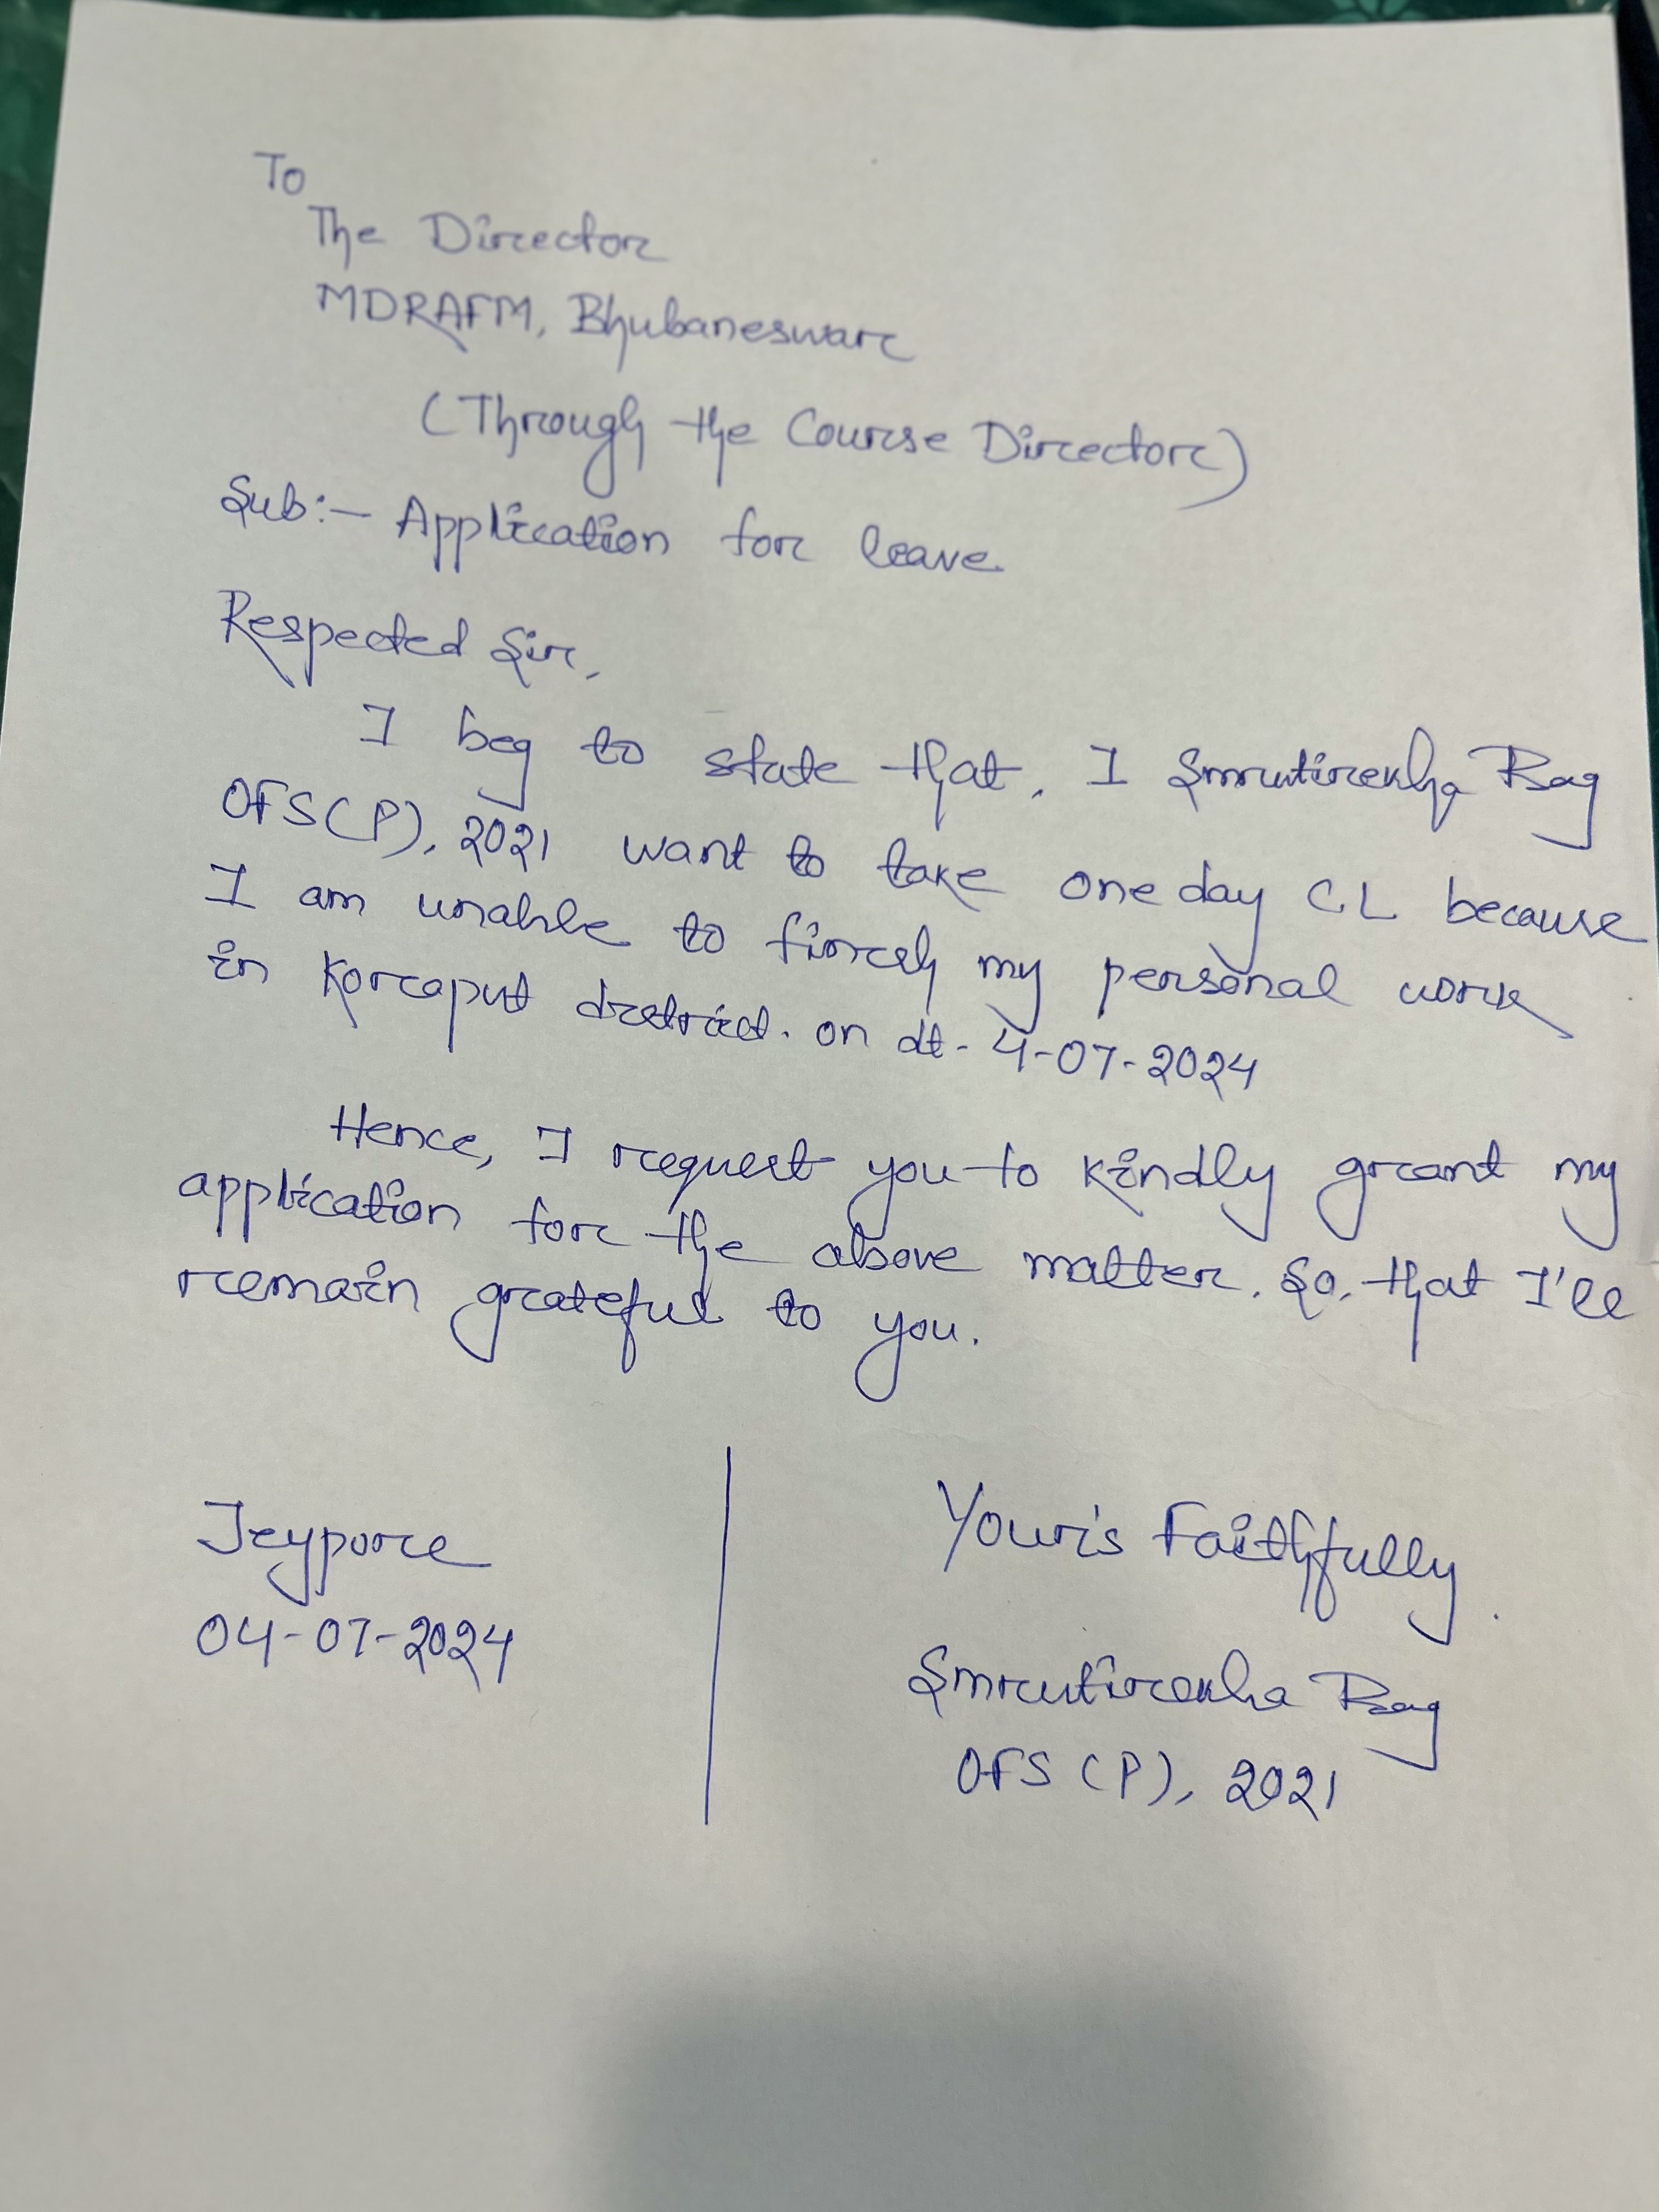 To
The Director
MDRAFM, Bhubaneswar
(Through the Course Director)
Sub:- Application for leave.
Respected Sir,
I beg to state that, I Smrutirenkha Bag
OFS(P), 2021 want to take one day CL because
I am unable to my personal work
in Koraput district. on dt- 4-07-2024
Hence, I request you to kindly grant my
application for the above matter. So, that I'll
remain grateful to you.
Jeypore
04-07-2024
Your's Faithfully
Smrutirenkha Bag
OFS (P), 2021